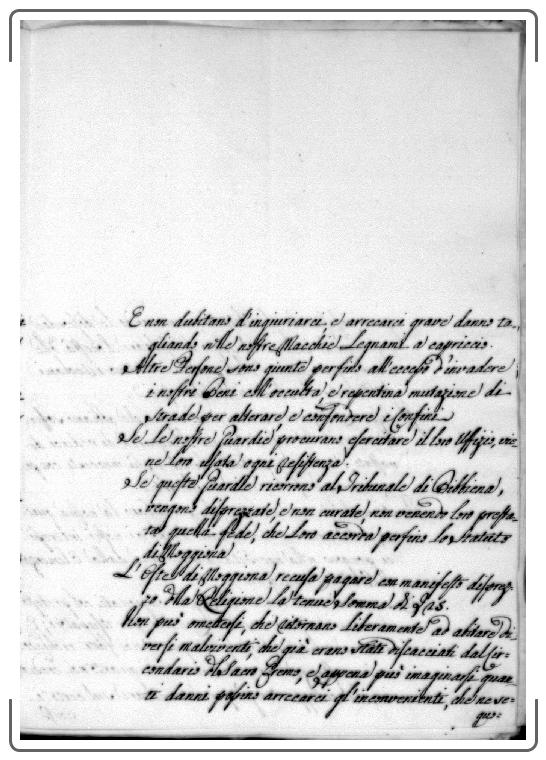 E non dubitano d'ingiuriarci, e arrecarci grave danno ta-
gliando nelle nostre Macchie Legnami a capriccio.
Altre Persone sono giunte perfino all'eccesso d'invadere
i nostri Beni coll'occulta, e repentina mutazione di
Strade per alterare e confondere i Confini
Se le nostre Guardie procurano esercitare il loro Uffizio, vie-
ne loro usata ogni resistenza.
Se queste Guardie ricorrono al Tribunale di Bibbiena,
vengono disprezzate e non curate, non venendo loro presta-
ta quella fede, che Loro accorda perfino lo Statuto
di Moggiona
L'Oste di Moggiona recusa pagare con manifesto disprez-
zo della Religione la tenue somma di
Non può omettersi, che ritornano liberamente ad abitare di-
versi malviventi, che già erano stati discacciati dal Cir-
condario del Sacro Eremo, e appena può imaginarsi quan-
ti danni possino arrecarci gl'inconvenienti, che ne se-
guo-